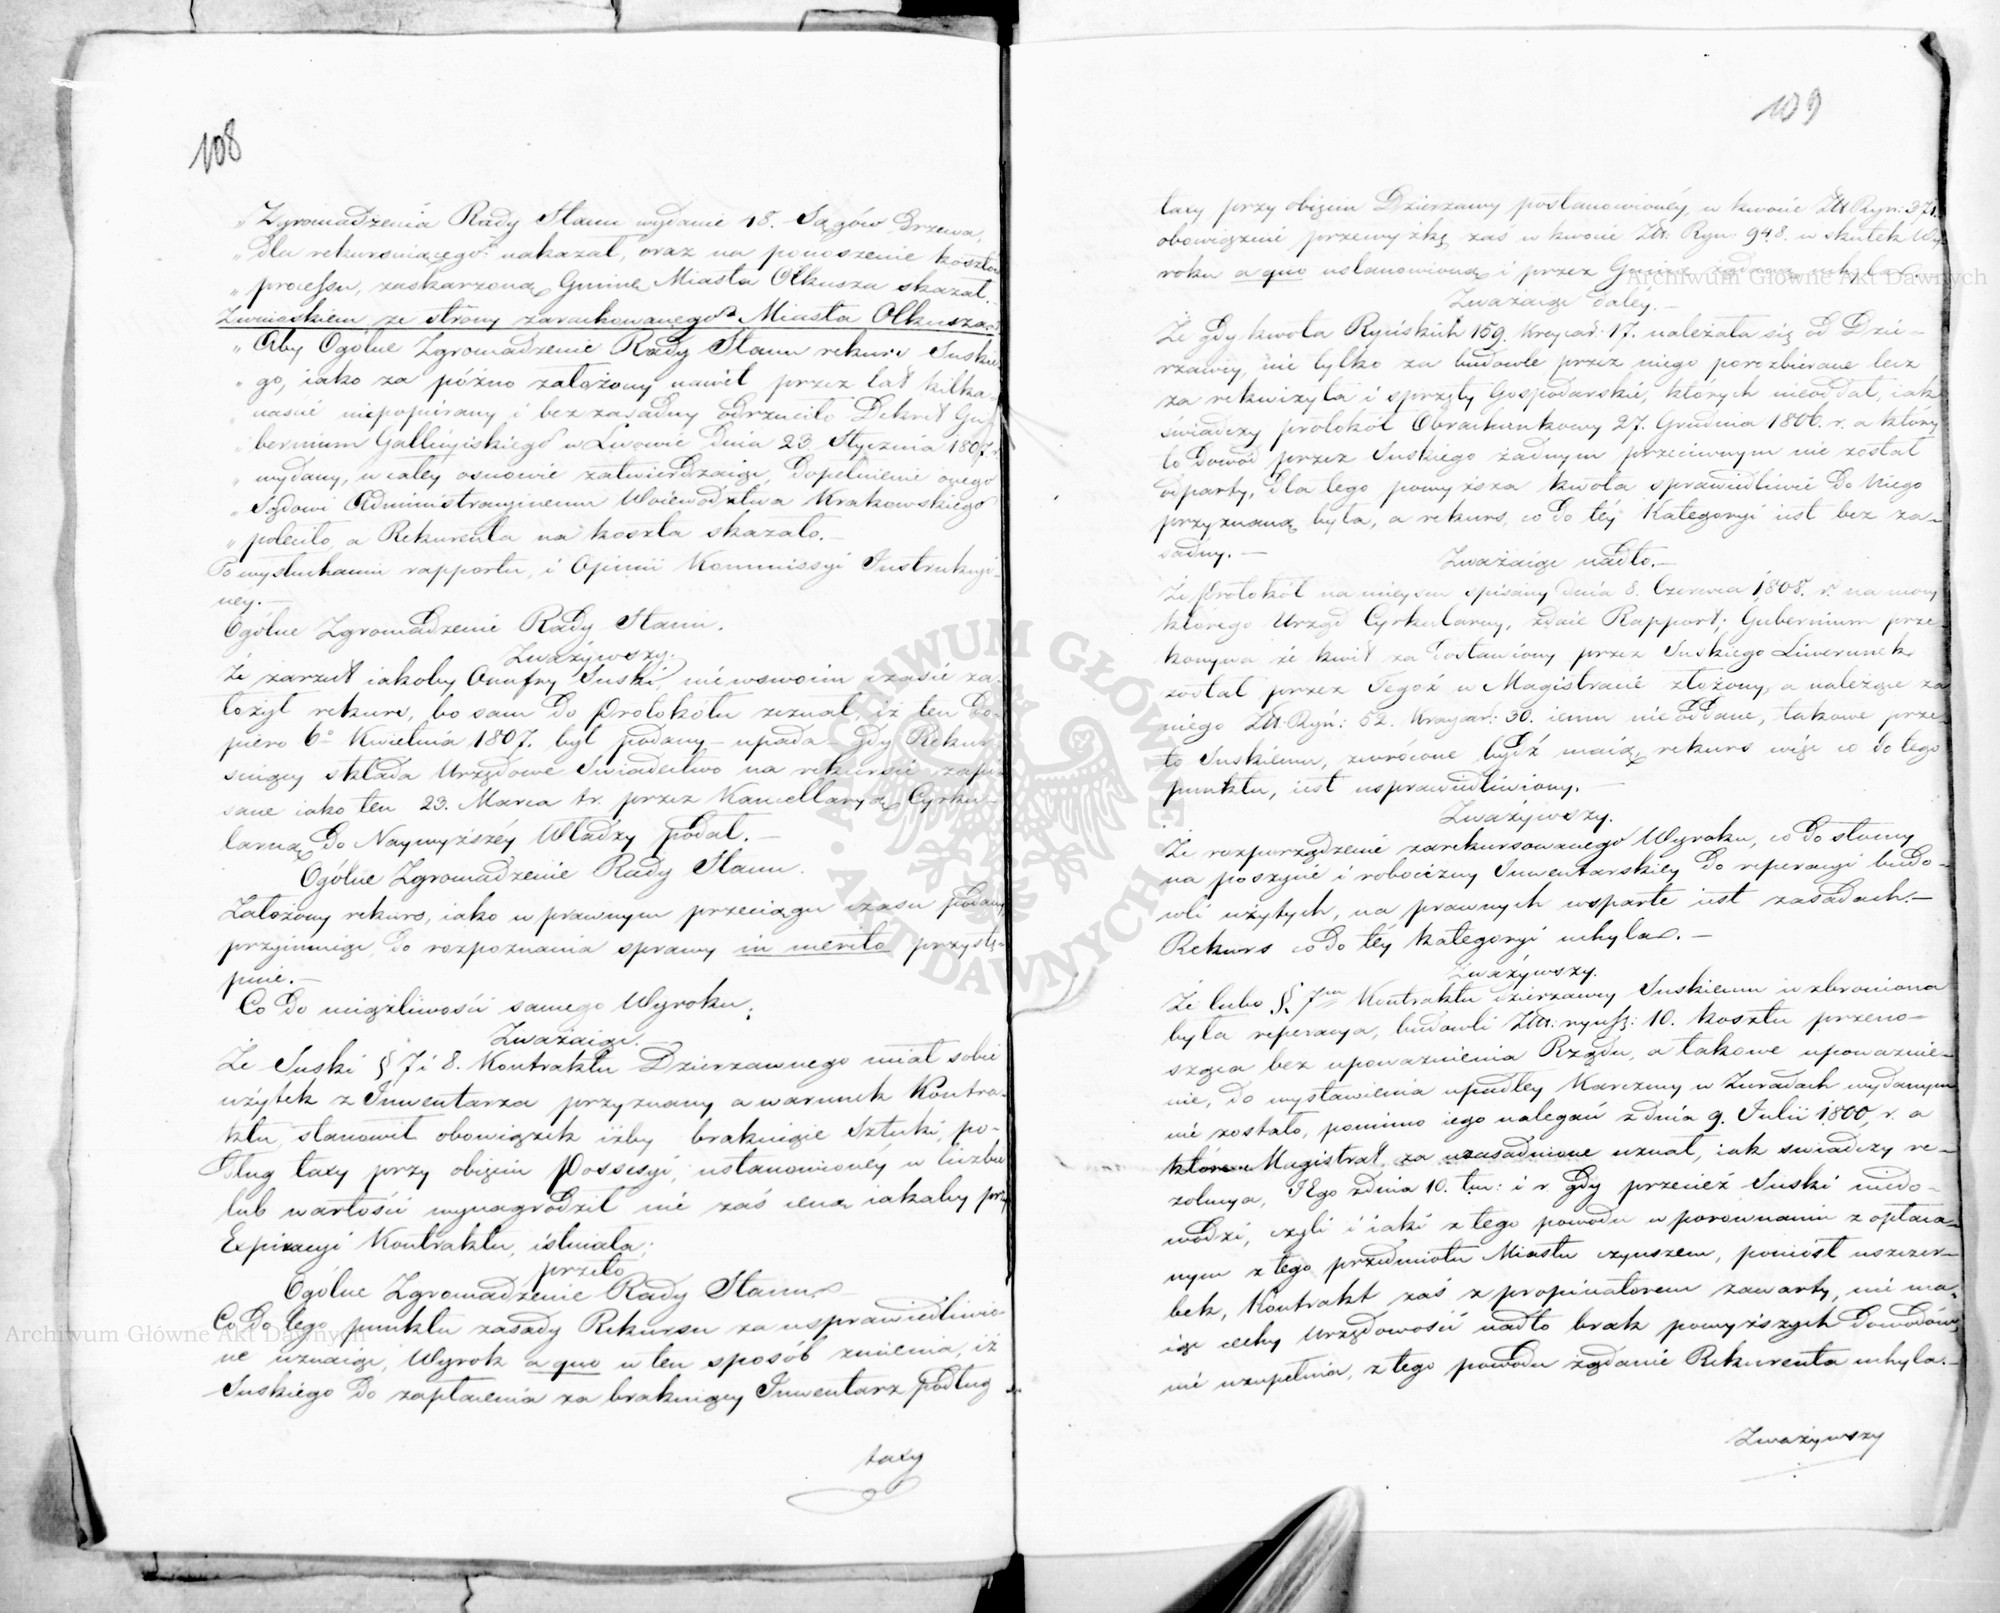 108
„ Zgromadzenia Rady Stanu wydanie 18. Sągów Drzewa,
„ dla rekursuiącego nakazał, oraz na ponoszenie kosztów
„ processu, zaskarżoną Gminę Miasta Olkusza skazał.
Z wnioskiem ze strony zarekursowanego Miasta Olkusza
„ Aby Ogólne Zgromadzenie Rady Stanu rekurs Suskie
„ go, iako za późno założony nawet przez lat kilka
„ niepopierany i bezzasadny odrzuciło Dekret Gu
„ bernium Galicyiskiego w Lwowie dnia 23 Stycznia 1807. r.
„ wydany, w całey osnowie zatwierdzaiąc, dopełnienie onego
„ Sądowi Administracyinemu Woiewództwa Krakowskiego
„ poleciło, a Rekurenta na koszta skazało.—
Po wysłuchaniu rapportu, i Opinii Kommissyi Instrukcyi-
ney.—
Ogólne Zgromadzenie Rady Stanu.
Zważywszy.
Że zarzut iakoby Onufry Suski, nie w swoim czasie za-
łożył rekurs, bo sam do Protokółu zeznał, iż ten do-
piero 6o Kwietnia 1807. był podany— upada— gdy Rekur
suiący składa Urzędowe Swiadectwo na rekursie zapi
sane iako ten 23. Marca t.r. przez Kancellaryą Cyrku-
larną do Naywyższéy Władzy podał.—
Ogólne Zgromadzenie Rady Stanu.
Założony rekurs, iako w prawnym przeciągu czasu podany
przyimuiąc, do rozpoznania sprawy in merito przystę-
puie.—
Co do uciążliwości samego Wyroku.
Zważaiąc.—
Że Suski § 7 i 8. Kontraktu Dzierzawnego miał sobie
użytek z Inwentarza przyznany a warunek Kontra-
ktu, stanowił obowiązek iżby brakuiące Sztuki, po-
dług taxy przy obięciu Possesyi, ustanowionéy w liczbie
lub wartości wynagrodził nie zaś ceną iakaby przy
Expiracyi Kontraktu, istniała;
przeto
Ogólne Zgromadzenie Rady Stanu
Co do tego punktu zasady Rekursu za usprawiedliwio-
ne uznaiąc, Wyrok a quo w ten sposób zmienia, iż
Suskiego do zapłacenia za brakuiący Inwentarz podług
taxy
109
taxy przy obięciu Dzierzawy postanowionéy, w kwocie Złt Ryn: 371.
obowiązuie przewyżkę zaś w kwocie Zł: Ryn: 948. w skutek Wy-
roku a quo ustanowioną i przez Gminę żądaną uchyla.
Zważaiąc daléy.—
Że gdy kwota Ryńskich 159. Kraycar: 17. należała się od Dzie-
rzawcy, nie tylko za budowle przez niego porozbierane lecz
za rekwizyta i sprzęty Gospodarskie, których nieoddał, iak
świadczy protokół Obrachunkowy 27. Grudnia 1806. r. a który
to dowód przez Suskiego żadnym przeciwnym nie został
odparty, dla tego powyższa kwota sprawiedliwie do Niego
przyznaną była, a rekurs, co do téy Kategoryi iest bez za-
sadny.—
Zważaiąc nadto.—
Że Protokół na mieyscu spisany dnia 8. Czerwca 1808. r. na mocy
którego Urząd Cyrkularny, zdaie Rapport, Gubernium prze-
konywa że kwit za dostawiony przez Suskiego Liwerunek
został przez Tegoż w Magistracie złożony, a należące za
niego Złt. Ryń: 52. Kraycar: 30. iemu nie oddane, takowe prze-
to Suskiemu, zwrócone bydź maią, rekurs więc co do tego
punktu, iest usprawiedliwiony.—
Zważywszy.
Że rozporządzenie zarekursowanego Wyroku, co do słomy
na poszycie i robocizny Inwentarskiey do reperacyi budo-
wli użytych, na prawnych wsparte iest zasadach.—
Rekurs co do téy kategoryi uchyla.—
Zważywszy.
Że lubo §. 7m Kontraktu dzierzawcy Suskiemu wzbroniona
była reperacya, budowli Złt: ryńs: 10. kosztu przeno-
sząca bez upoważnienia Rządu, a takowe upoważnie-
nie, do wystawienia upadłey Karczmy w Zuradach wydanym
nie zostało, pomimo iego nalegań z dnia 9. Julii 1800. r. a
które Magistrat, za uzasadnione uznał, iak swiadczy re-
zolucya, IEgo z dnia 10. t.m: i r. gdy przecież Suski niedo-
wodzi, czyli i iaki z tego powodu w porownaniu z opłaca-
nym z tego przedmiotu Miastu czynszem, poniósł uszczer-
bek, Kontrakt zaś z propinatorem zawarty, nie ma-
iąc cechy Urzędowości nadto brak powyższych dowodów,
nie uzupełnia, z tego powodu żądanie Rekurenta uchyla.—
Zważywszy